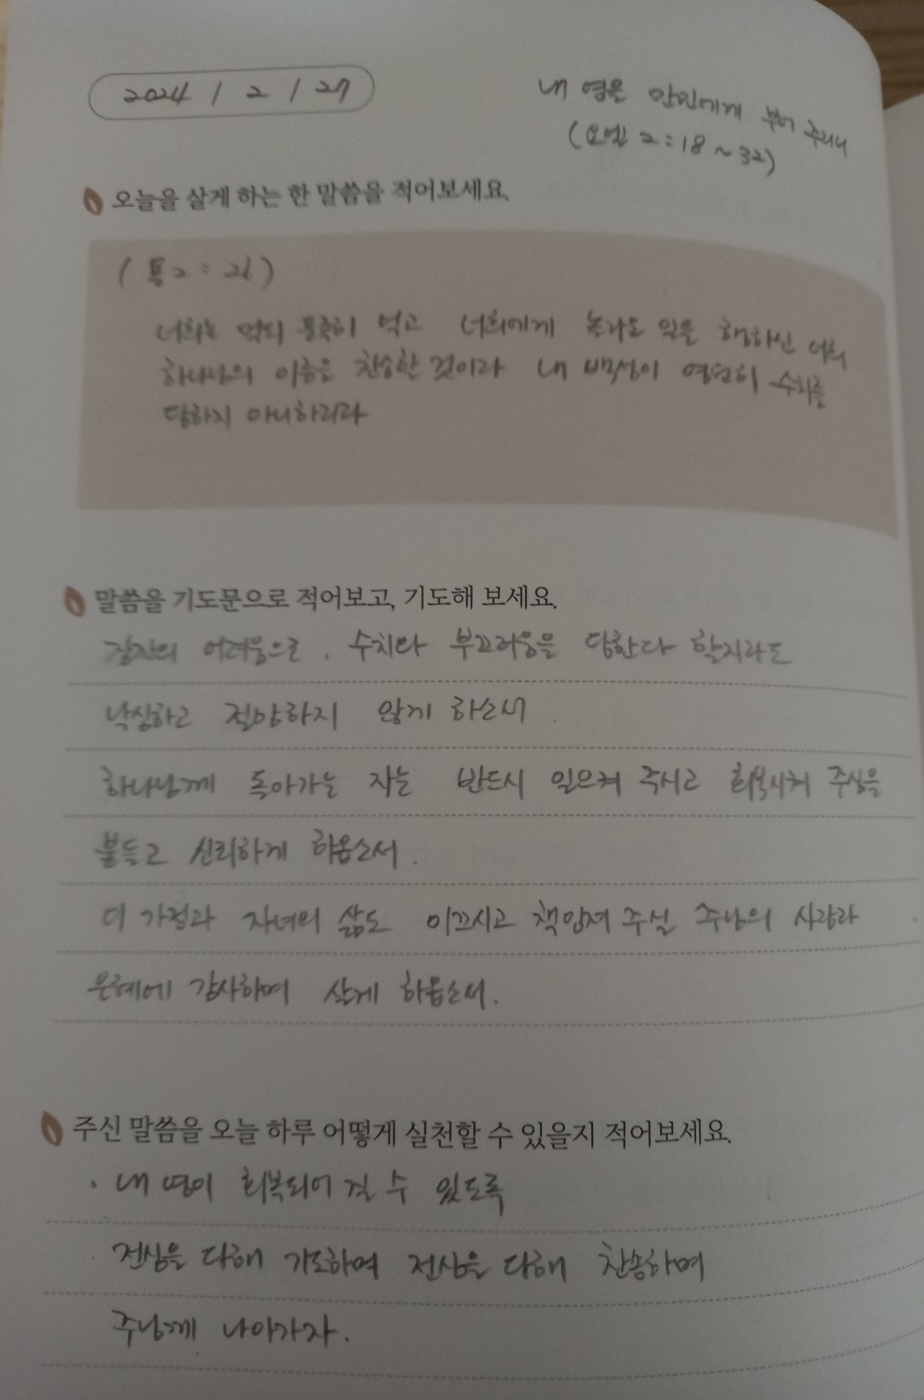 2024 / 2 / 27
내 영을 만민에게 부어 주리니
(요엘 2:18~32)
오늘을 살게 하는 한 말씀을 적어보세요.
(욜2:26)
너희는 먹되 풍족히 먹고 너희에게 놀라운 일을 행하신 너희
하나님의 이름을 찬송할 것이라 내 백성이 영원히 수치를
당하지 아니하리라
말씀을 기도문으로 적어보고, 기도해 보세요.
어려움으로. 수치와 부끄러움을 당한다 할지라도
낙심하고 절망하지 않게 하소서
하나님께 돌아가는 자는 반드시 일으켜 주시고 회복시켜 주심을
붙들고 신뢰하게 하옵소서.
이 가정과 자녀의 삶도 이끄시고 책임져 주실 주님의 사랑과
은혜에 감사하며 살게 하옵소서.
주신 말씀을 오늘 하루 어떻게 실천할 수 있을지 적어보세요.
· 내 영이 회복되어 질 수 있도록
전심을 다해 기도하며 전심을 다해 찬송하며
주님께 나아가자.